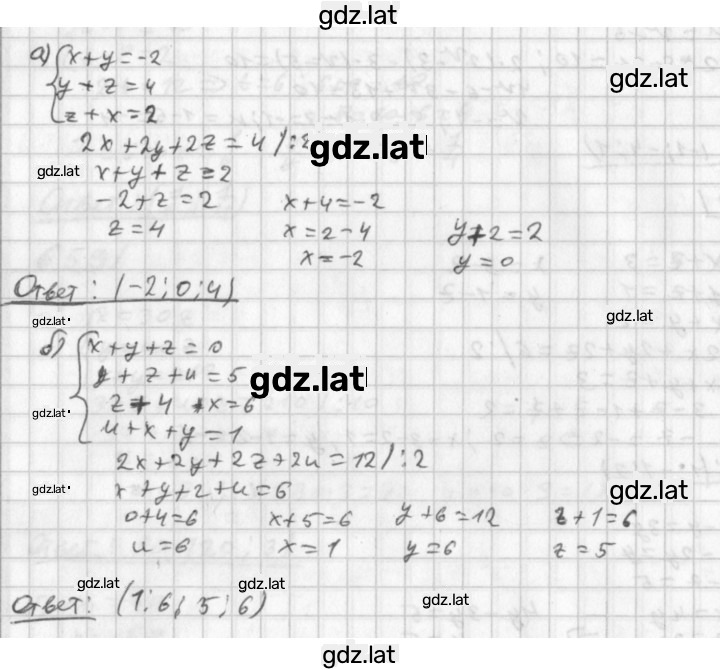 gdz.lat
а) { x+y=-2
y+z=4
gdz.lat
z+x=2
2x+2y+2z=4 /:2
gdz.lat
gdz.lat x+y+z=2
-2+z=2 x+4=-2
z=4 x=2-4 y+2=2
x=-2 y=0
Ответ: (-2;0;4)
gdz.lat gdz.lat
б) { x+y+z=0
y+z+u=5
gdz.lat
z+4+x=6
gdz.lat
u+x+y=1
2x+2y+2z+2u=12/:2
gdz.lat x+y+z+u=6 gdz.lat
0+4=6 x+5=6 y+6=12 z+1=6
u=6 x=1 y=6 z=5
gdz.lat gdz.lat
Ответ: (1;6;5;6) gdz.lat
gdz.lat